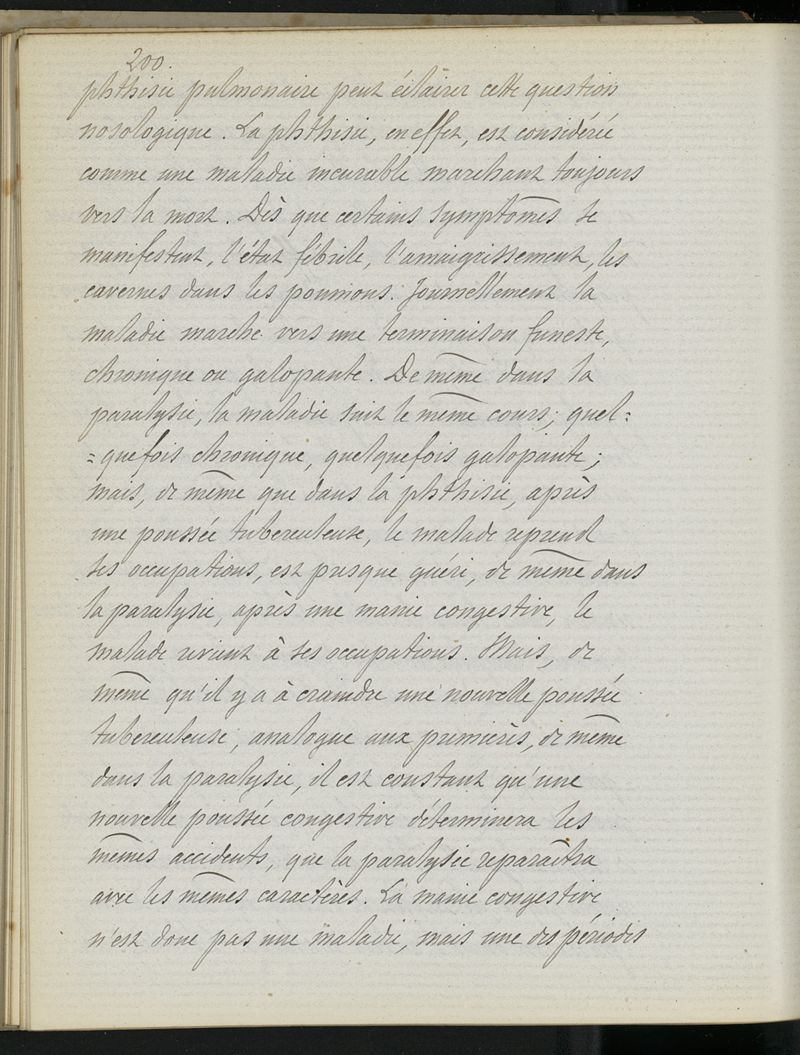 200.
phthisie pulmonaire peut éclairer cette question
nosologique. La phthisie, en effet, est considérée
comme une maladie incurable marchant toujours
vers la mort. Dès que certains symptômes se
manifestent, l'état fébrile, l'amaigrissement, les
cavernes dans les poumons. Journellement la
maladie marche vers une terminaison funeste,
chronique ou galopante. De même dans la
paralysie, la maladie suit le même cours; quel=
=quefois chronique, quelquefois galopante;
mais, de même que dans la phthisie, après
une poussée tuberculeuse, le malade reprend
ses occupations, est presque guéri, de même dans
la paralysie, après une manie congestive, le
malade revient à ses occupations. Mais, de
même qu'il y a à craindre une nouvelle poussée
tuberculeuse, analogue aux premières, de même
dans la paralysie, il est constant qu'une
nouvelle poussée congestive déterminera les
mêmes accidents, que la paralysie reparaîtra
avec les mêmes caractères. La manie congestive
n'est donc pas une maladie, mais une des périodes